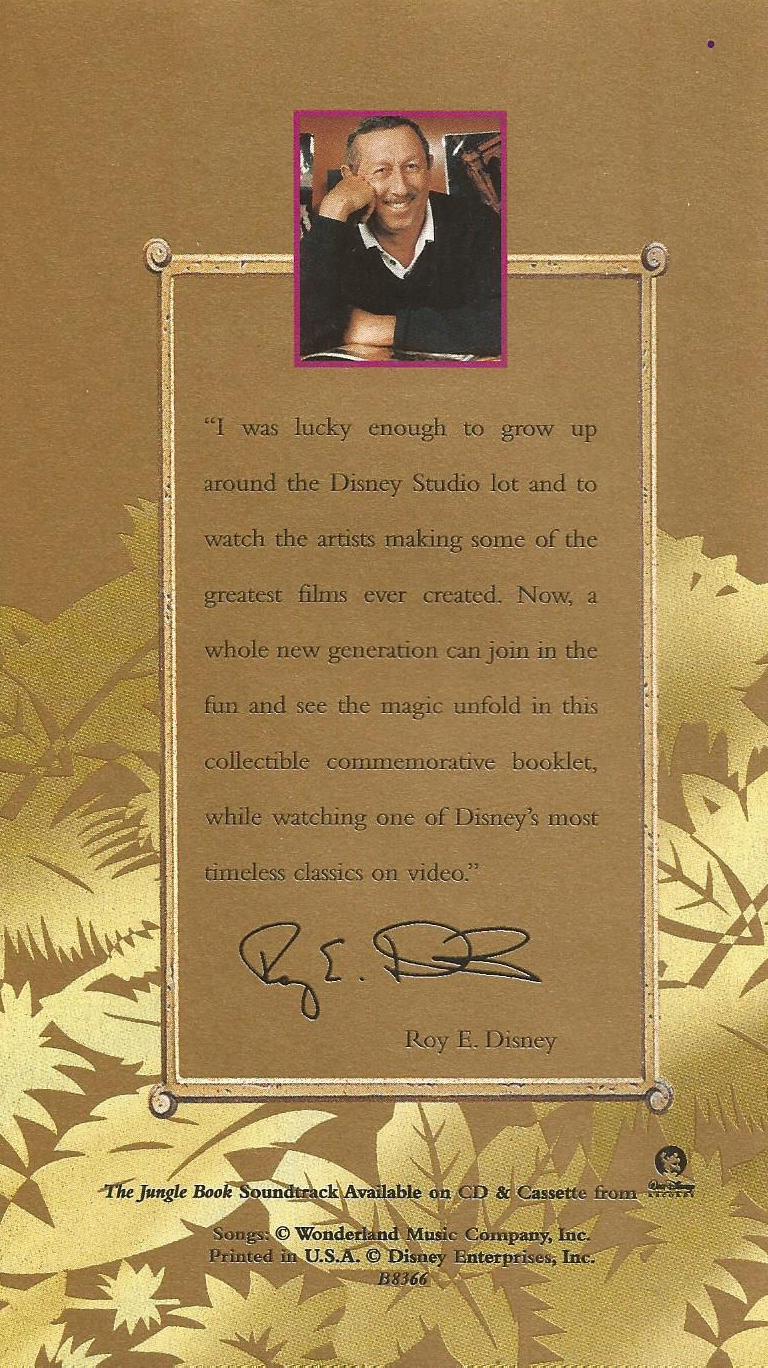 “I was lucky enough to grow up
around the Disney Studio lot and to
watch the artists making some of the
greatest films ever created. Now, a
whole new generation can join in the
fun and see the magic unfold in this
collectible commemorative booklet,
while watching one of Disney’s most
timeless classics on video.”
Roy E. Disney
Roy E. Disney
The Jungle Book Soundtrack Available on CD & Cassette from
Walt Disney
RECORDS
Songs: © Wonderland Music Company, Inc.
Printed in U.S.A. © Disney Enterprises, Inc.
B8366